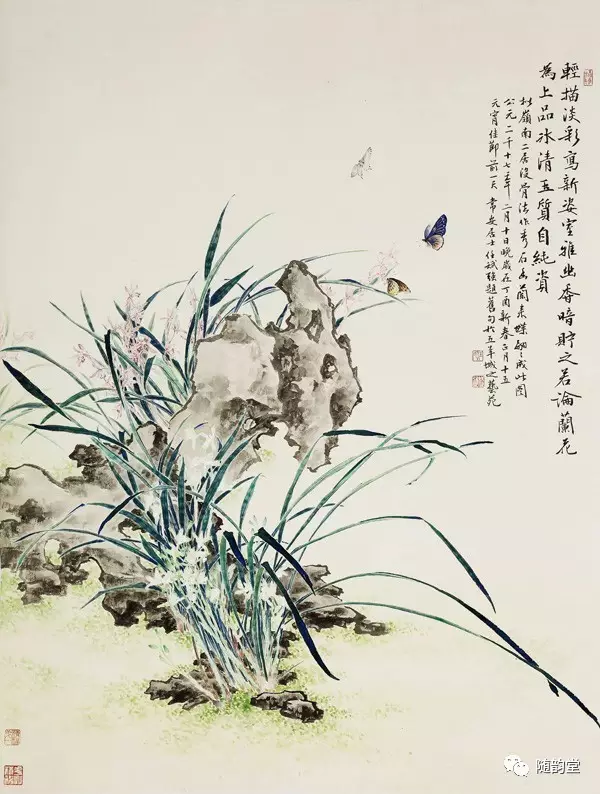 輕描淡彩寫新姿室雅幽香暗貯之若論蘭花
為上品冰清玉質自純資
嶺南二居没骨法作秀石蘭来蝶翩〻成此图
公元二千十七年二月十日晚歲在丁酉新春正月十五
元宵佳節前一天 常安居士任題舊句於五羊城之藝苑
随韵堂